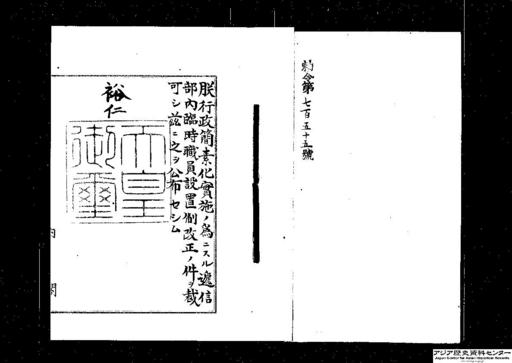 勅令第七百五十五號
朕行政簡素化實施ノ為ニスル遞信
部内臨時職員設置制改正ノ件ヲ裁
可シ茲ニ之ヲ公布セシム
裕仁
天皇
御璽
内閣
アジア歴史資料センター
Japan Center for Asian Historical Records